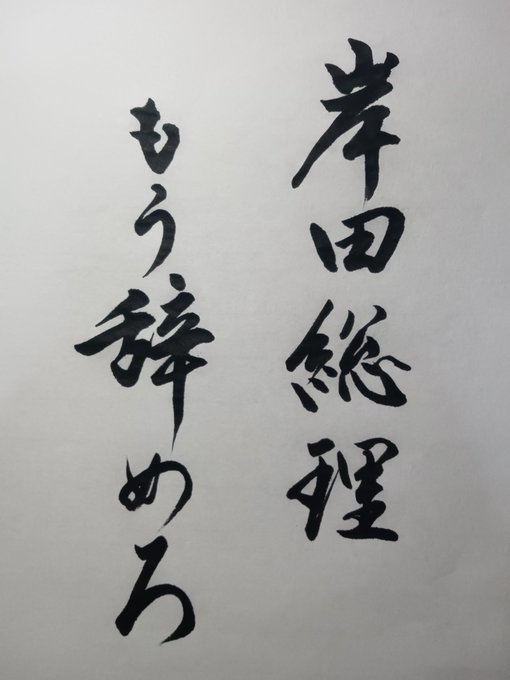 岸田総理
もう辞めろ